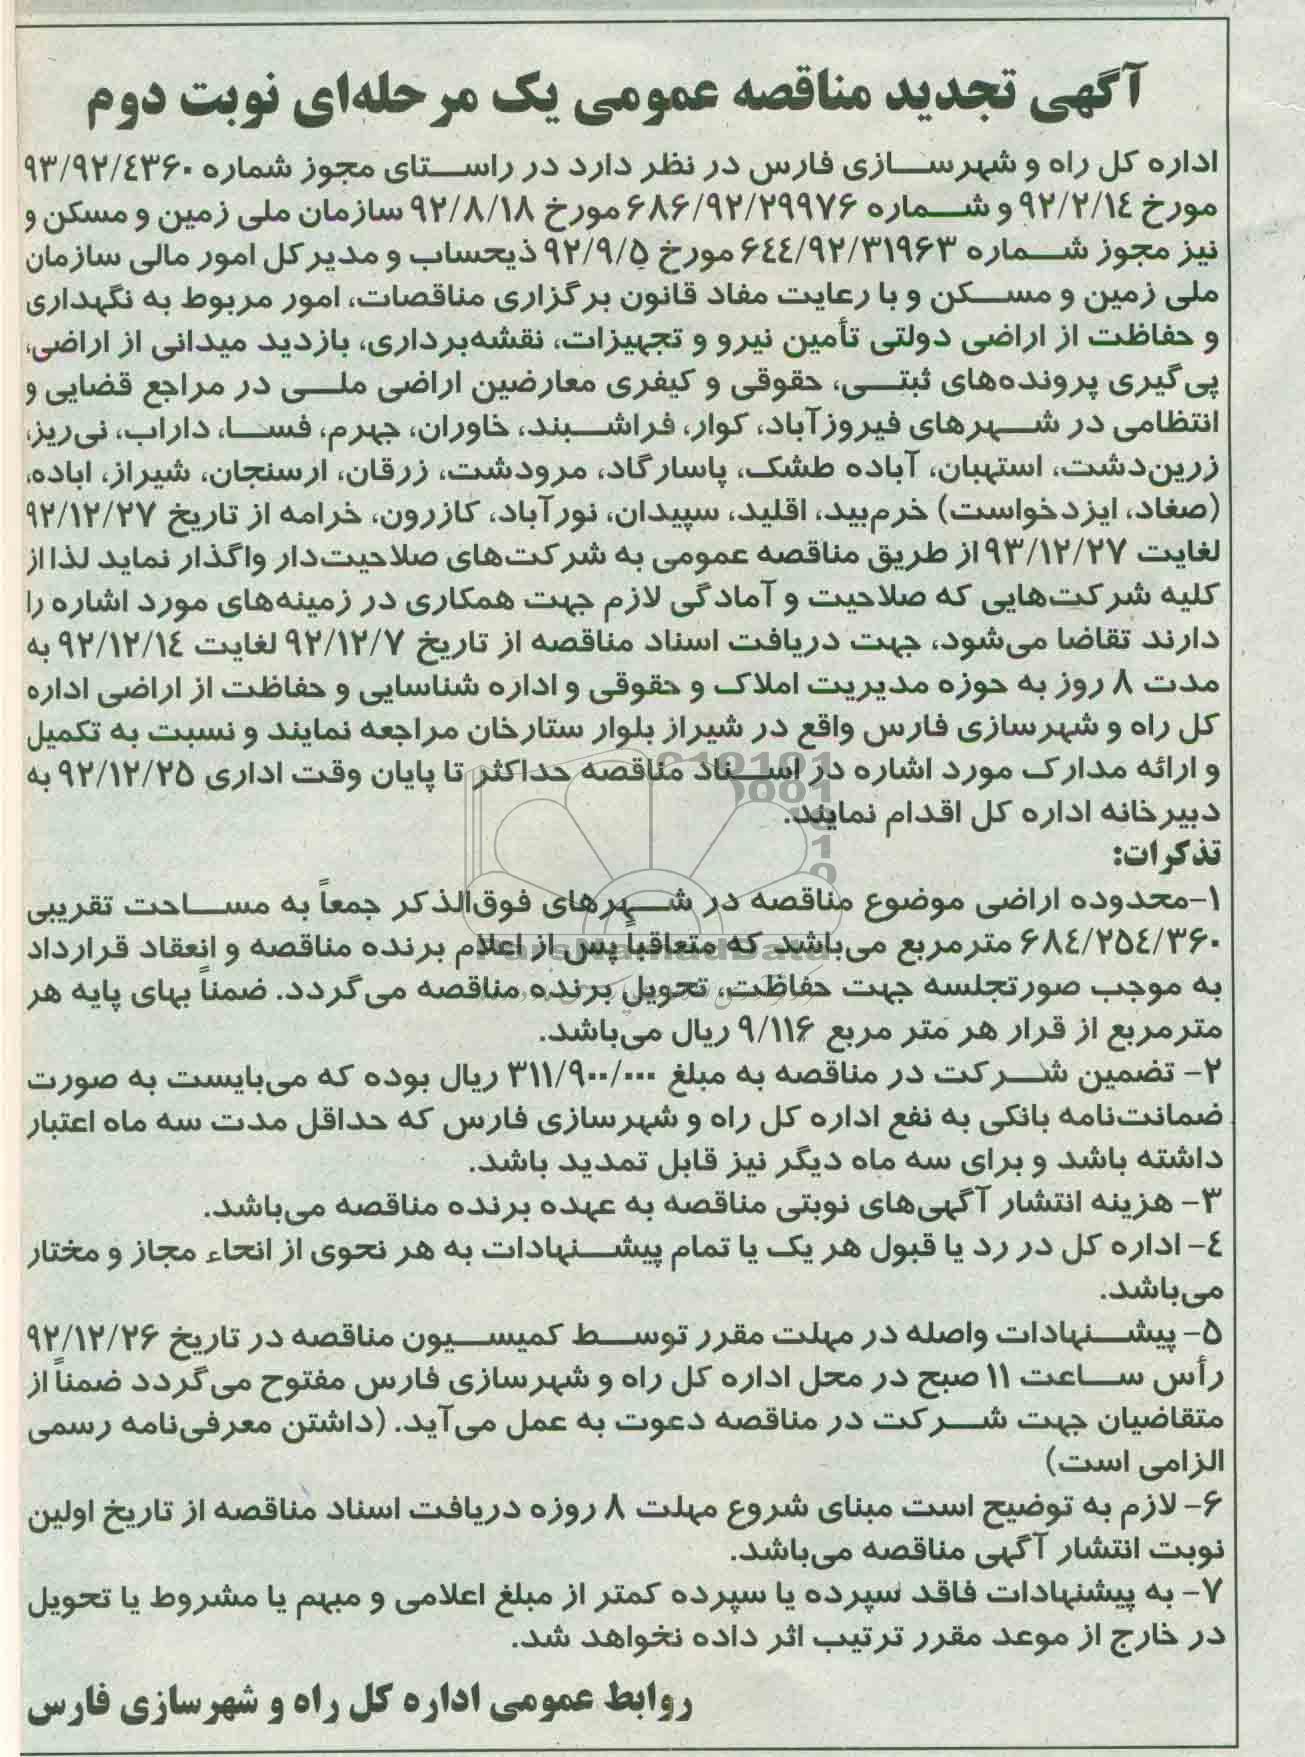 آگهی تجدید مناقصه عمومی یک مرحله‌ای نوبت دوم
اداره کل راه و شهرسازی فارس در نظر دارد در راستای مجوز شماره ۹۳/۹۲/۴۳۶۰
مورخ ۹۲/۲/۱۴ و شماره ۶۸۶/۹۲/۲۹۹۷۶ مورخ ۹۲/۸/۱۸ سازمان ملی زمین و مسکن و
نیز مجوز شماره ۶۴۴/۹۲/۳۱۹۶۳ مورخ ۹۲/۹/۵ ذیحساب و مدیر کل امور مالی سازمان
ملی زمین و مسکن و با رعایت مفاد قانون برگزاری مناقصات، امور مربوط به نگهداری
و حفاظت از اراضی دولتی تأمین نیرو و تجهیزات، نقشه‌برداری، بازدید میدانی از اراضی،
پی‌گیری پرونده‌های ثبتی، حقوقی و کیفری معارضین اراضی ملی در مراجع قضایی و
انتظامی در شهرهای فیروزآباد، کوار، فراشبند، خاوران، جهرم، فسا، داراب، نی‌ریز،
زرین‌دشت، استهبان، آباده طشک، پاسارگاد، مرودشت، زرقان، ارسنجان، شیراز، اباده،
(صغاد، ایزدخواست) خرم‌بید، اقلید، سپیدان، نورآباد، کازرون، خرامه از تاریخ ۹۲/۱۲/۲۷
لغایت ۹۳/۱۲/۲۷ از طریق مناقصه عمومی به شرکت‌های صلاحیت‌دار واگذار نماید لذا از
کلیه شرکت‌هایی که صلاحیت و آمادگی لازم جهت همکاری در زمینه‌های مورد اشاره را
دارند تقاضا می‌شود، جهت دریافت اسناد مناقصه از تاریخ ۹۲/۱۲/۷ لغایت ۹۲/۱۲/۱۴ به
مدت ۸ روز به حوزه مدیریت املاک و حقوقی و اداره شناسایی و حفاظت از اراضی اداره
کل راه و شهرسازی فارس واقع در شیراز بلوار ستارخان مراجعه نمایند و نسبت به تکمیل
و ارائه مدارک مورد اشاره در اسناد مناقصه حداکثر تا پایان وقت اداری ۹۲/۱۲/۲۵ به
دبیرخانه اداره کل اقدام نمایند.
تذکرات:
۱-محدوده اراضی موضوع مناقصه در شهرهای فوق‌الذکر جمعاً به مساحت تقریبی
۶۸۴/۲۵۴/۳۶۰ مترمربع می‌باشد که متعاقباً پس از اعلام برنده مناقصه و انعقاد قرارداد
به موجب صورتجلسه جهت حفاظت، تحویل برنده مناقصه می‌گردد. ضمناً بهای پایه هر
مترمربع از قرار هر متر مربع ۹/۱۱۶ ریال می‌باشد.
۲- تضمین شرکت در مناقصه به مبلغ ۳۱۱/۹۰۰/۰۰۰ ریال بوده که می‌بایست به صورت
ضمانت‌نامه بانکی به نفع اداره کل راه و شهرسازی فارس که حداقل مدت سه ماه اعتبار
داشته باشد و برای سه ماه دیگر نیز قابل تمدید باشد.
۳- هزینه انتشار آگهی‌های نوبتی مناقصه به عهده برنده مناقصه می‌باشد.
۴- اداره کل در رد یا قبول هر یک یا تمام پیشنهادات به هر نحوی از انحاء مجاز و مختار
می‌باشد.
۵- پیشنهادات واصله در مهلت مقرر توسط کمیسیون مناقصه در تاریخ ۹۲/۱۲/۲۶
رأس ساعت ۱۱ صبح در محل اداره کل راه و شهرسازی فارس مفتوح می‌گردد ضمناً از
متقاضیان جهت شرکت در مناقصه دعوت به عمل می‌آید. (داشتن معرفی‌نامه رسمی
الزامی است)
۶- لازم به توضیح است مبنای شروع مهلت ۸ روزه دریافت اسناد مناقصه از تاریخ اولین
نوبت انتشار آگهی مناقصه می‌باشد.
۷- به پیشنهادات فاقد سپرده یا سپرده کمتر از مبلغ اعلامی و مبهم یا مشروط یا تحویل
در خارج از موعد مقرر ترتیب اثر داده نخواهد شد.
روابط عمومی اداره کل راه و شهرسازی فارس